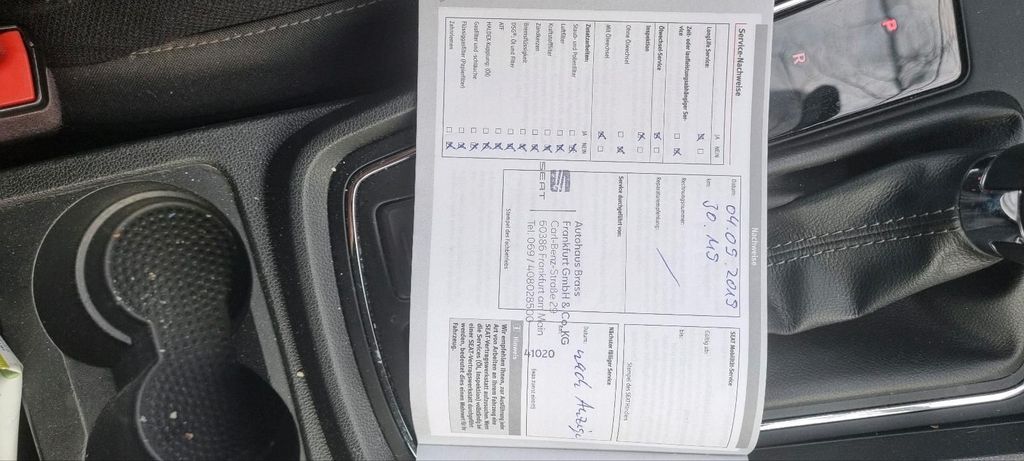 Nachweise
Service-Nachweise
JA NEIN
LongLife Service:
Zeit- oder laufleistungsabhängiger Ser-
vice
Ölwechsel-Service
Inspektion
Ohne Ölwechsel
Mit Ölwechsel
Zusatzarbeiten:
JA NEIN
Staub- und Pollenfilter
Luftfilter
Kraftstofffilter
Zündkerzen
Bremsflüssigkeit
DSG®: Öl und Filter
ATF
HALDEX-Kupplung: (Öl)
Gasfilter und -schläuche
Flüssiggasfilter (Papierfilter)
Zahnriemen
Datum: 04.09.2019
km:
Rechnungsnummer:
Reparaturempfehlung:
Service durchgeführt von:
SEAT
Autohaus Brass
Frankfurt GmbH & Co. KG
Carl-Benz-Straße 29
60386 Frankfurt am Main
Tel. 069 / 408028500
41020
Stempel des Fachbetriebs
SEAT Mobilität-Service
Gültig ab:
bis:
Stempel des SEAT Partners
Nächster fälliger Service
Datum: nach Anzeige
(was zuerst eintritt)
i Hinweis
Wir empfehlen Ihnen, zur Ausführung jeder
Art von Arbeiten an Ihrem Fahrzeug eine
SEAT-Vertragswerkstatt aufzusuchen. Wenn
die Services (Öl, Inspektion) vollständig bei
einer SEAT-Vertragswerkstatt durchgeführt
werden, bedeutet dies einen Mehrwert für Ihr
Fahrzeug.
P
R